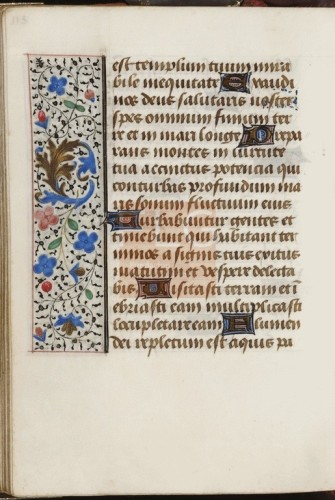 est templum tuum mira
bile in equitate Exaudi
nos deus salutaris noster
spes omnium finium ter
re et in mari longe Prepa
rans montes in virtute
tua accinctus potencia qui
conturbas profundum ma
ris sonum fluctuum eius
Turbabuntur gentes et
timebunt qui habitant ter
minos a signis tuis exitus
matutini et vespere delecta
bis Uisitasti terram et in
ebriasti eam multiplicasti
locupletare eam Flumen
dei repletum est aquis pa